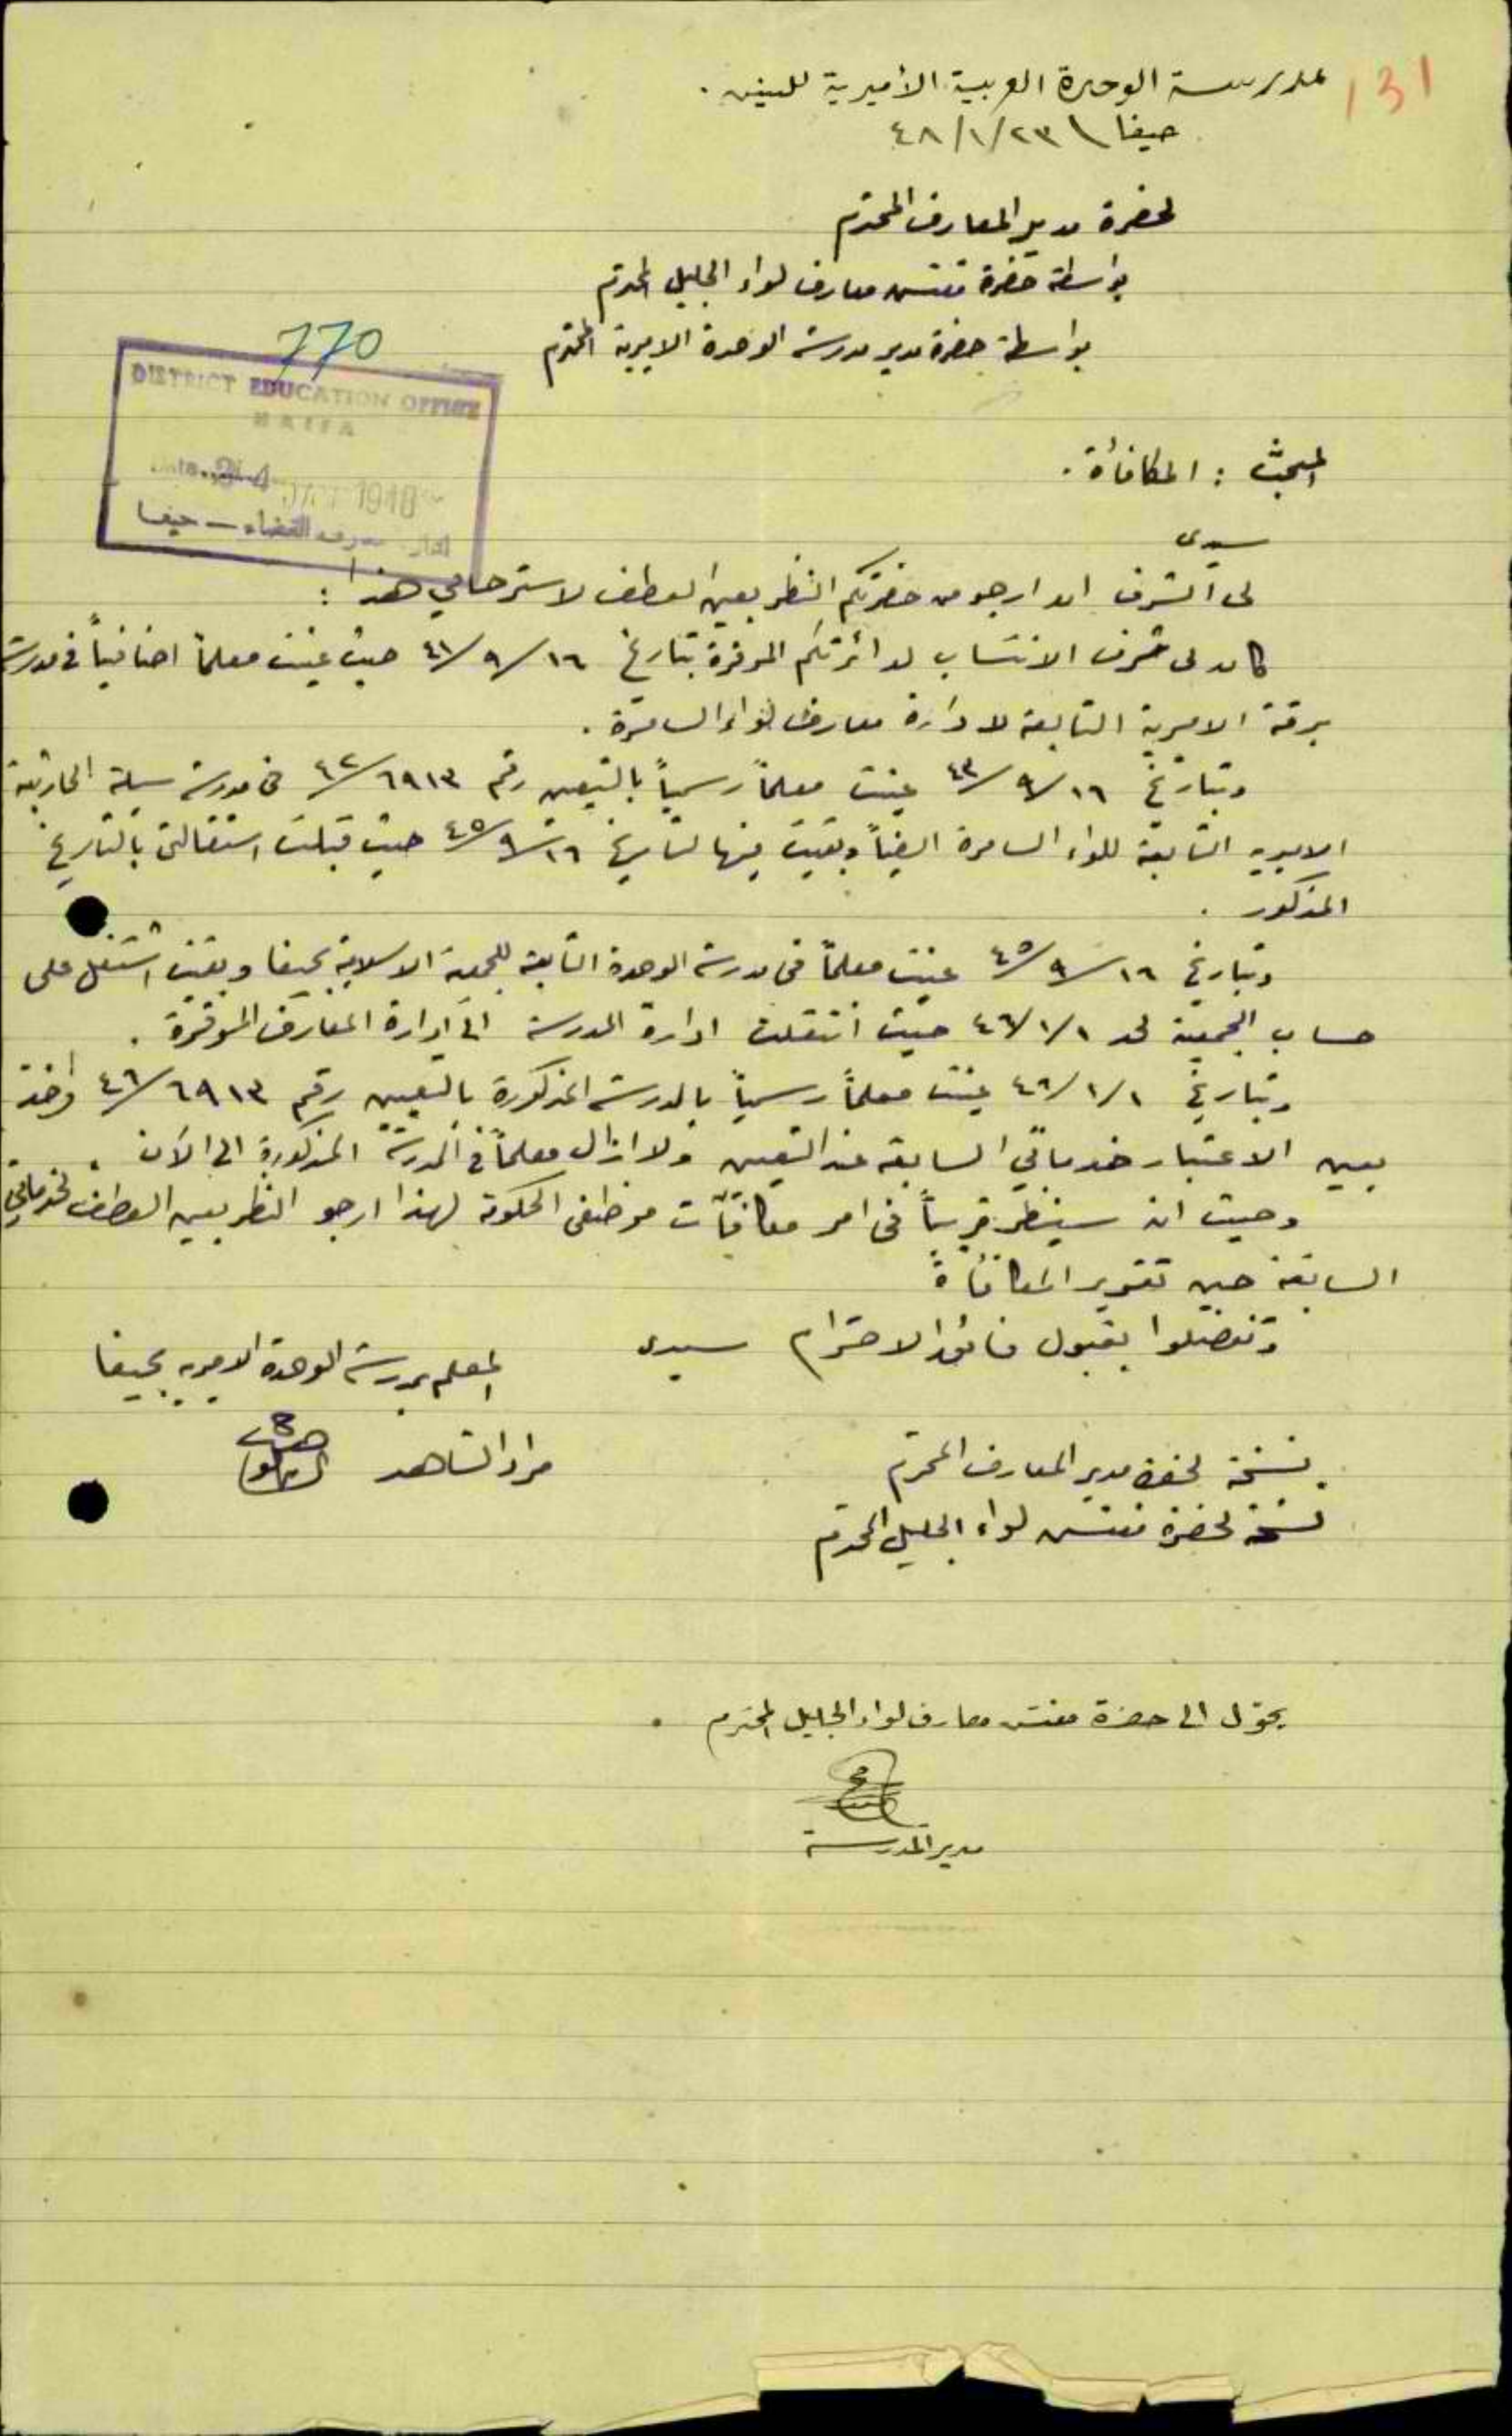 131
مدرسة الوحدة العربية الأميرية للبنين .
حيفا \ ٢٣/١/٤٨
لحضرة مدير المعارف المحترم
بواسطة حضرة مفتش معارف لواء الجليل المحترم
بواسطة حضرة مدير مدرسة الوحدة الاميرية المحترم
770
DISTRICT EDUCATION OFFICE
HAIFA
24 1948
معارف القضاء — حيفا
المبحث : المكافأة .
سيدي
لي الشرف ان ارجو من حضرتكم النظر بعين العطف لاسترحامي هذا :
كان لي شرف الانتساب لدائرتكم الموقرة بتاريخ ١٦/٩/٤١ حيث عينت معلماً اضافياً في مدرسة
برقة الاميرية التابعة لادارة معارف لواء السامرة .
وبتاريخ ١٦/٩/٤٢ عينت معلماً رسمياً بالتعيين رقم ٦٩١٣/٤٢ في مدرسة سيلة الحارثية
الاميريه التابعة للواء السامرة ايضاً وبقيت فيها لتاريخ ١٦/٩/٤٥ حيث قبلت استقالتي بالتاريخ
المذكور .
وبتاريخ ١٦/٩/٤٥ عينت معلماً في مدرسة الوحدة التابعة للجمعية الاسلامية بحيفا وبقيت اشتغل على
حساب الجمعية لحد ١/١/٤٦ حيث انتقلت ادارة المدرسة الى ادارة المعارف الموقرة .
وبتاريخ ١/١/٤٦ عينت معلماً رسمياً بالمدرسة المذكورة بالتعيين رقم ٦٩١٣/٤٦ واخذ
بعين الاعتبار خدماتي السابقة عند التعيين ولا ازال معلماً في المدرسة المذكورة الى الآن .
وحيث انه سينظر قريباً في امر مكافآت موظفي الحكومة لهذا ارجو النظر بعين العطف لخدماتي
السابقة حين تقرير المكافأة
وتفضلوا بقبول فائق الاحترام سيدي
المعلم بمدرسة الوحدة الاميريه بحيفا
مراد الشاهد
نسخة لحضرة مدير المعارف المحترم
نسخة لحضرة مفتش لواء الجليل المحترم
يحوّل الى حضرة مفتش معارف لواء الجليل المحترم .
مدير المدرسة